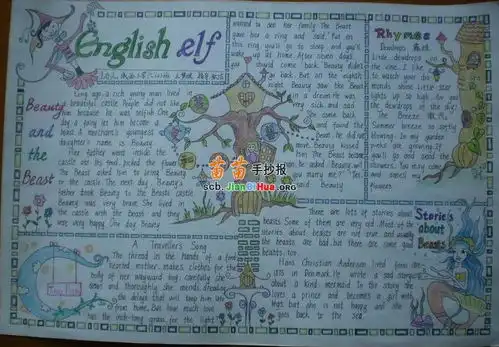 English elf
Beauty
and the
Beast
Long ago, a rich young man lived in
beautiful castle. People did not like
him because he was selfish. One
day a fairy let him become a
beast. A merchant's youngest
daughter's name is Beauty.
Her father went inside the
castle and his
picked the flower
The Beast asked him to bring Beauty
to the castle. The next day Beauty's
father drove Beauty to the Beast castle
Beauty was very brave. She lived in
the castle with the beast and they
were very happy. One day Beauty
wanted to see her family. The Beast
gave her a ring and said, "Put on
this ring you'll go to sleep and you'll
wake up at home. After seven days
you should come back. Beauty didn't
go back. But on the eighth
night Beauty saw the Beast
in a dream. He was
very sick and sad.
She came back
and found the
beast, he did not
move. Beauty kissed
him. The Beast
he asked Beauty
marry me?" "Yes."
Beauty
Rhymes
Dewdrops
Little dewdrops
to watch your
lights up
the dewdrops
The Breeze
Summer breeze so softly
blowing. In my garden
pinks are growing. If
you'll go and send the
showers. You may come
and smell my
flowers.
苗苗手抄报
scb.JianBiHua.org
A Traveller's Song
The thread in the hands of a fond
hearted mother makes clothes for the
body of her wayward boy; carefully she
sews and thoroughly she mends, dreading
the delays that will keep him late
from home. But how much love
has the inch-long grass for the light
There are lots of stories about
beasts. Some of them are very old. Most of the
stories about beasts are not true and usually
the beasts are bad, but there are some good
beasts, too.
Hans Christian Andersen lived from
in Denmark. He wrote a sad story
about a kind mermaid. In the story she
loves a prince and becomes a girl with
legs but she is not happy and she
goes back to the sea.
Stories
about
Beasts